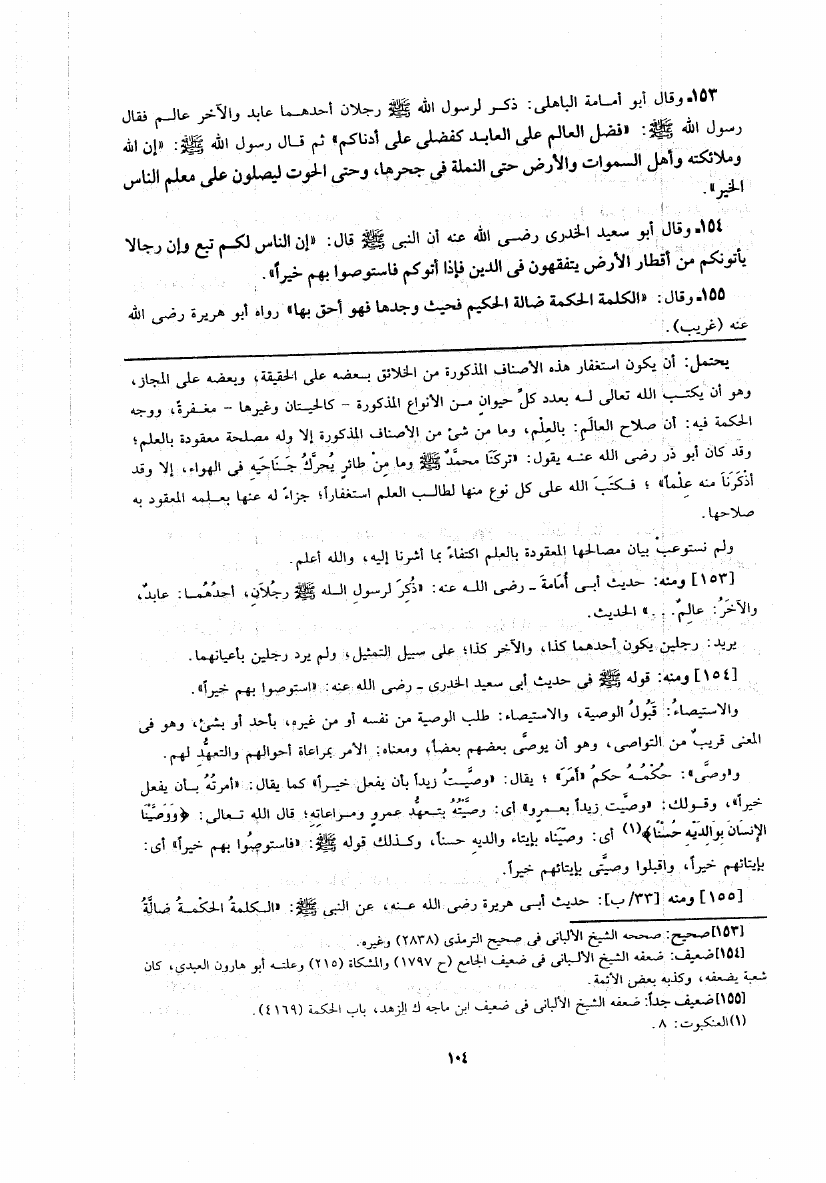 ١٥٣ـ وقال أبو أمـامة الباهلى: ذكـر لرسول الله ﷺ رجلان أحدهـما عابد والآخر عالـم فقال
رسول الله ﷺ: «فضل العالم على العابـد كفضلى على أدناكم» ثم قـال رسول الله ﷺ: «إن الله
وملائكته وأهل السموات والأرض حتى النملة فى جحرها، وحتى الحوت ليصلون على معلم الناس
الخير».
١٥٤ـ وقال أبو سعيد الخدرى رضـى الله عنه أن النبى ﷺ قال: «إن الناس لكـم تبع وإن رجالا
يأتونكم من أقطار الأرض يتفقهون فى الدين فإذا أتوكم فاستوصوا بهم خيراً».
١٥٥ـ وقال: «الكلمة الحكمة ضالة الحكيم فحيث وجدها فهو أحق بها» رواه أبو هريرة رضى الله
عنه (غريب).
يحتمل: أن يكون استغفار هذه الأصناف المذكورة من الخلائق بـعضه على الحقيقة، وبعضه على المجاز،
وهو أن يكتـب الله تعالى لـه بعدد كلِّ حيوانٍ مـن الأنواع المذكورة - كالحيـتان وغيرها - مغـفرةً، ووجه
الحكمة فيه: أن صلاح العالَم: بالعِلْم، وما من شئ من الأصناف المذكورة إلا وله مصلحة معقودة بالعلم؛
وقد كان أبو ذر رضى الله عنـه يقول: «تركنَا محمَّدٌ ﷺ وما مِنْ طائرٍ يُحرِّكُ جَـنَاحَيهِ فى الهواء، إلا وقد
أذْكَرَنَا منه عِلْماً» ؛ فـكتَبَ الله على كل نوع منها لطالـب العلم استغفاراً؛ جزاءً له عنها بعـلمه المعقود به
صلاحها.
ولم نستوعبْ بيان مصالحها المعقودة بالعلم اكتفاءً بما أشرنا إليه، والله أعلم.
[١٥٣] ومنه: حديث أبـى أُمَامَةَ ـ رضى اللـه عنه: «ذُكِرَ لرسولِ اللـه ﷺ رجُلاَنِ، أحدُهُمـا: عابدٌ،
والآخَرُ: عالِمٌ. . .» الحديث.
يريد: رجلين يكون أحدهما كذا، والآخر كذا؛ على سبيل التمثيل، ولم يرد رجلين بأعيانهما.
[١٥٤] ومنه: قوله ﷺ فى حديث أبى سعيد الخدرى ـ رضى الله عنه: «استوصوا بهم خيراً».
والاستيصاءُ: قَبُولُ الوصية، والاستيصاء: طلب الوصية من نفسه أو من غيره، بأحد أو بشئ، وهو فى
المعنى قريبٌ من التواصى، وهو أن يوصَّى بعضهم بعضاً، ومعناه: الأمر بمراعاة أحوالهم والتعهُّدِ لهم.
و«وصَّى»: حكْمُـهُ حكمُ «أَمَرَ» ؛ يقال: «وصَّيـتُ زيداً بأن يفعل خيـراً» كما يقال: «أمرتُهُ بـأن يفعل
خيراً»، وقـولك: «وصَّيت زيداً بعـمرٍو» أى: وصَّيتُهُ بتـعهُّدِ عمرٍو ومـراعاتِهِ؛ قال الله تعـالى: ﴿وَوَصَّيْنَا
الإِنسَانَ بِوَالِدَيْهِ حُسْنًا﴾(١) أى: وصيّناه بإيتاء والديهِ حسناً، وكـذلك قوله ﷺ: «فاستوصُوا بهم خيراً» أى:
بإيتائهم خيراً، واقبلوا وصيَّتى بإيتائهم خيراً.
[١٥٥] ومنه [٣٣/ب]: حديث أبـى هريرة رضى الله عـنه، عن النبى ﷺ: «الـكلمةُ الحكْمـةُ ضالَّةُ
[١٥٣]صحيح: صححه الشيخ الألبانى فى صحيح الترمذى (٢٨٣٨) وغيره.
[١٥٤]ضعيف: ضعفه الشيخ الألـبانى فى ضعيف الجامع (ح ١٧٩٧) والمشكاة (٢١٥) وعلتـه أبو هارون العبدى، كان
شعبة يضعفه، وكذبه بعض الأئمة.
[١٥٥]ضعيف جداً: ضعفه الشيخ الألبانى فى ضعيف ابن ماجه ك الزهد، باب الحكمة (٤١٦٩).
(١)العنكبوت: ٨.
١٠٤